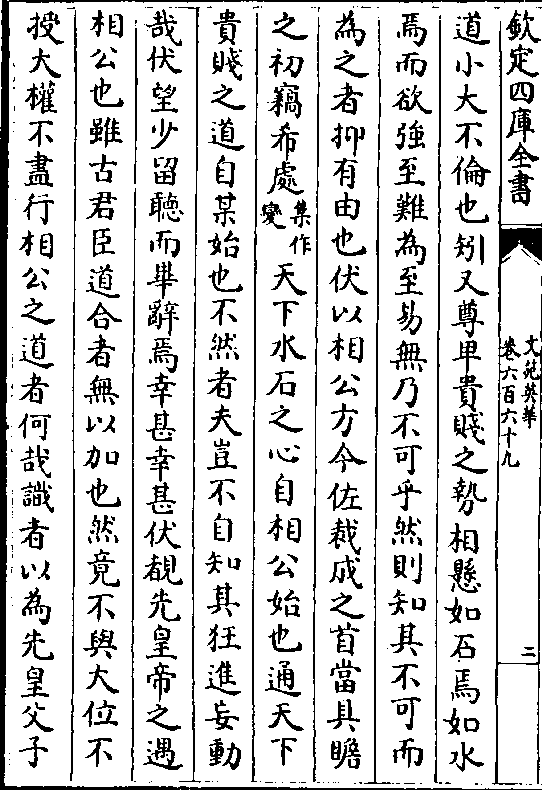 欽定四庫全書
文苑英華
卷六百六十九
二
道小大不倫也矧又尊卑貴賤之勢相懸如石焉如水
焉而欲強至難為至易無乃不可乎然則知其不可而
為之者抑有由也伏以相公方今佐裁成之首當具瞻
之初竊希處集作變天下水石之心自相公始也通天下
貴賤之道自某始也不然者夫豈不自知其狂進妄動
哉伏望少留聽而畢辭焉幸甚幸甚伏覩先皇帝之遇
相公也雖古君臣道合者無以加也然竟不與大位不
授大權不盡行相公之道者何哉識者以為先皇父子